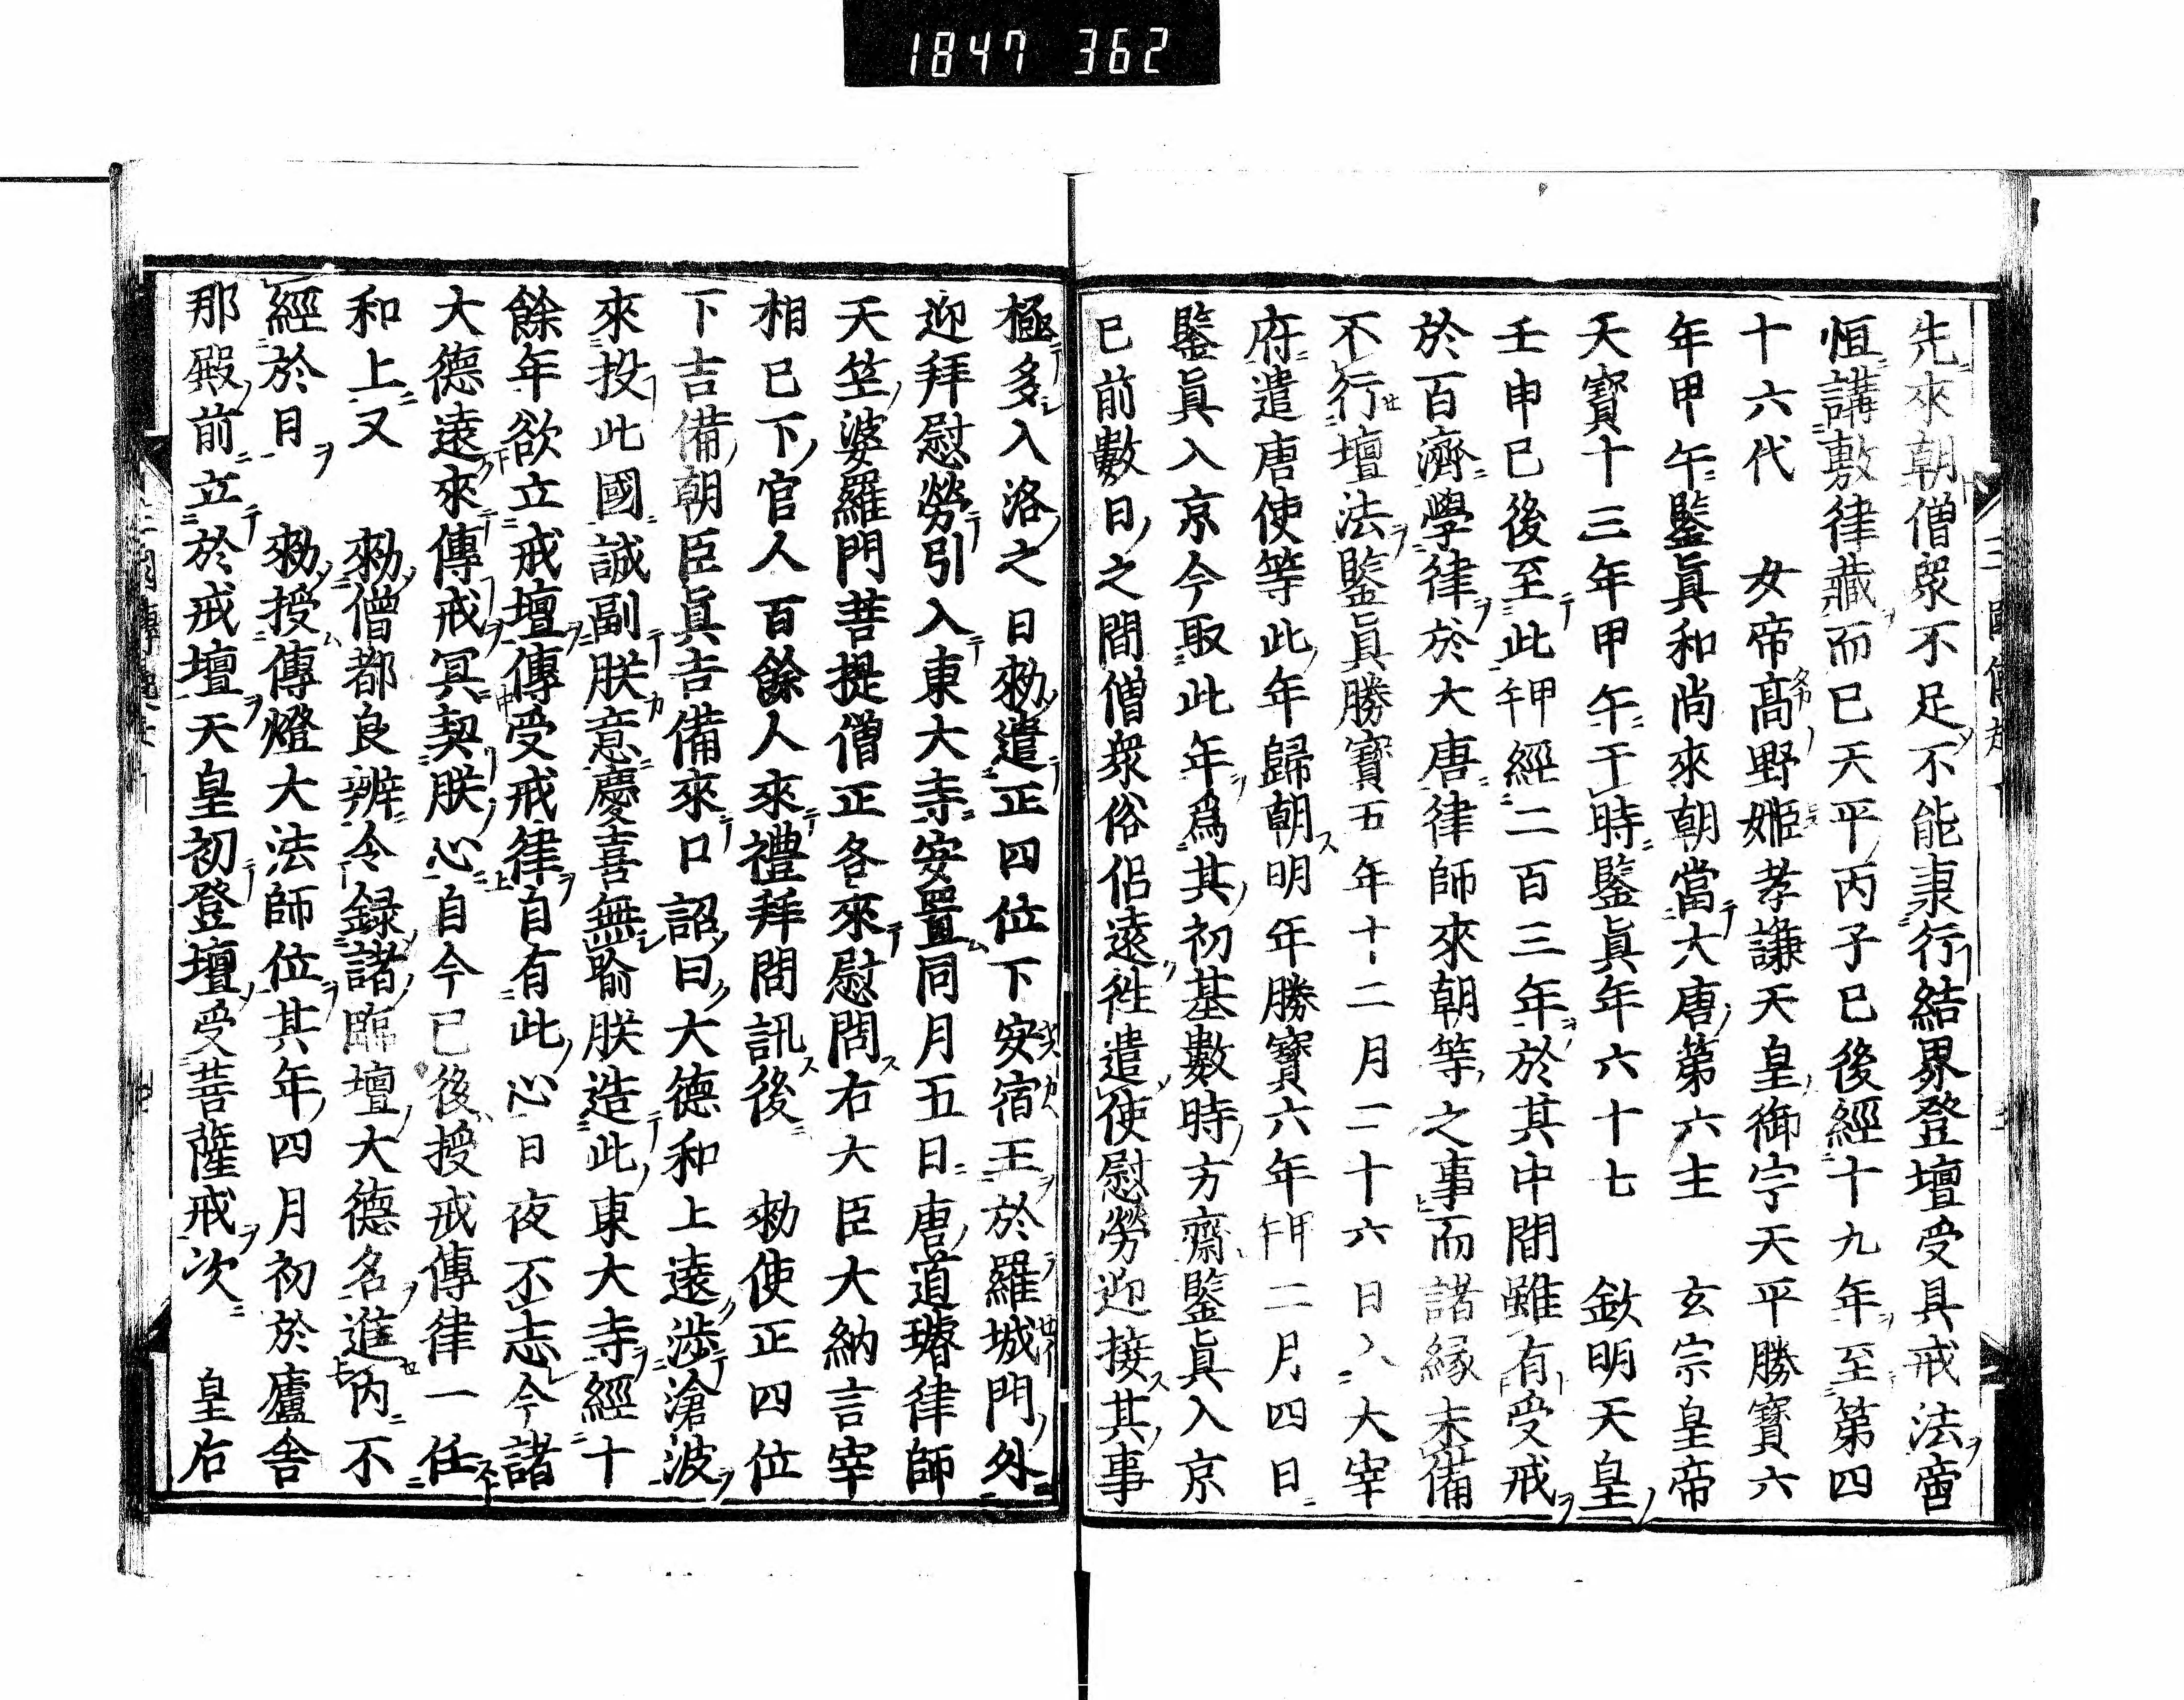 1847 362
先來朝僧眾不足不能隶行結界登壇受具戒法會
恒講敷律藏而已天平丙子已後經十九年至第四
十六代 女帝高野姫孝謙天皇御宇天平勝寶六
年甲午鑒眞和尚來朝當大唐第六主 玄宗皇帝
天寶十三年甲午于時鑒眞年六十七 欽明天皇
壬申已後至此甲午經二百三年於其中間雖有受戒
於百濟學律於大唐律師來朝等之事而諸緣未備
不行壇法鑒眞勝寶五年十二月二十六日入大宰
府遣唐使等此年歸朝明年勝寶六年甲午二月四日
鑒眞入京今取此年爲其初基數時方齋鑒眞入京
已前數日之間僧眾俗侶遠徃遣使慰勞迎接其事
極多入洛之日勑遣正四位下安宿王於羅城門外
迎拜慰勞引入東大寺安置同月五日唐道璿律師
天竺婆羅門菩提僧正各來慰問右大臣大納言宰
相已下官人百餘人來禮拜問訊後 勑使正四位
下吉備朝臣眞吉備來口詔曰大德和上遠渉滄波
來投此國誠副朕意慶喜無喻朕造此東大寺經十
餘年欲立戒壇傳受戒律自有此心日夜不忘今諸
大德遠來傳戒冥契朕心自今已後授戒傳律一任
和上又 勑僧都良辨令錄諸臨壇大德名進内不
經於日 勑授傳燈大法師位其年四月初於廬舍
那殿前立於戒壇天皇初登壇受菩薩戒次 皇后